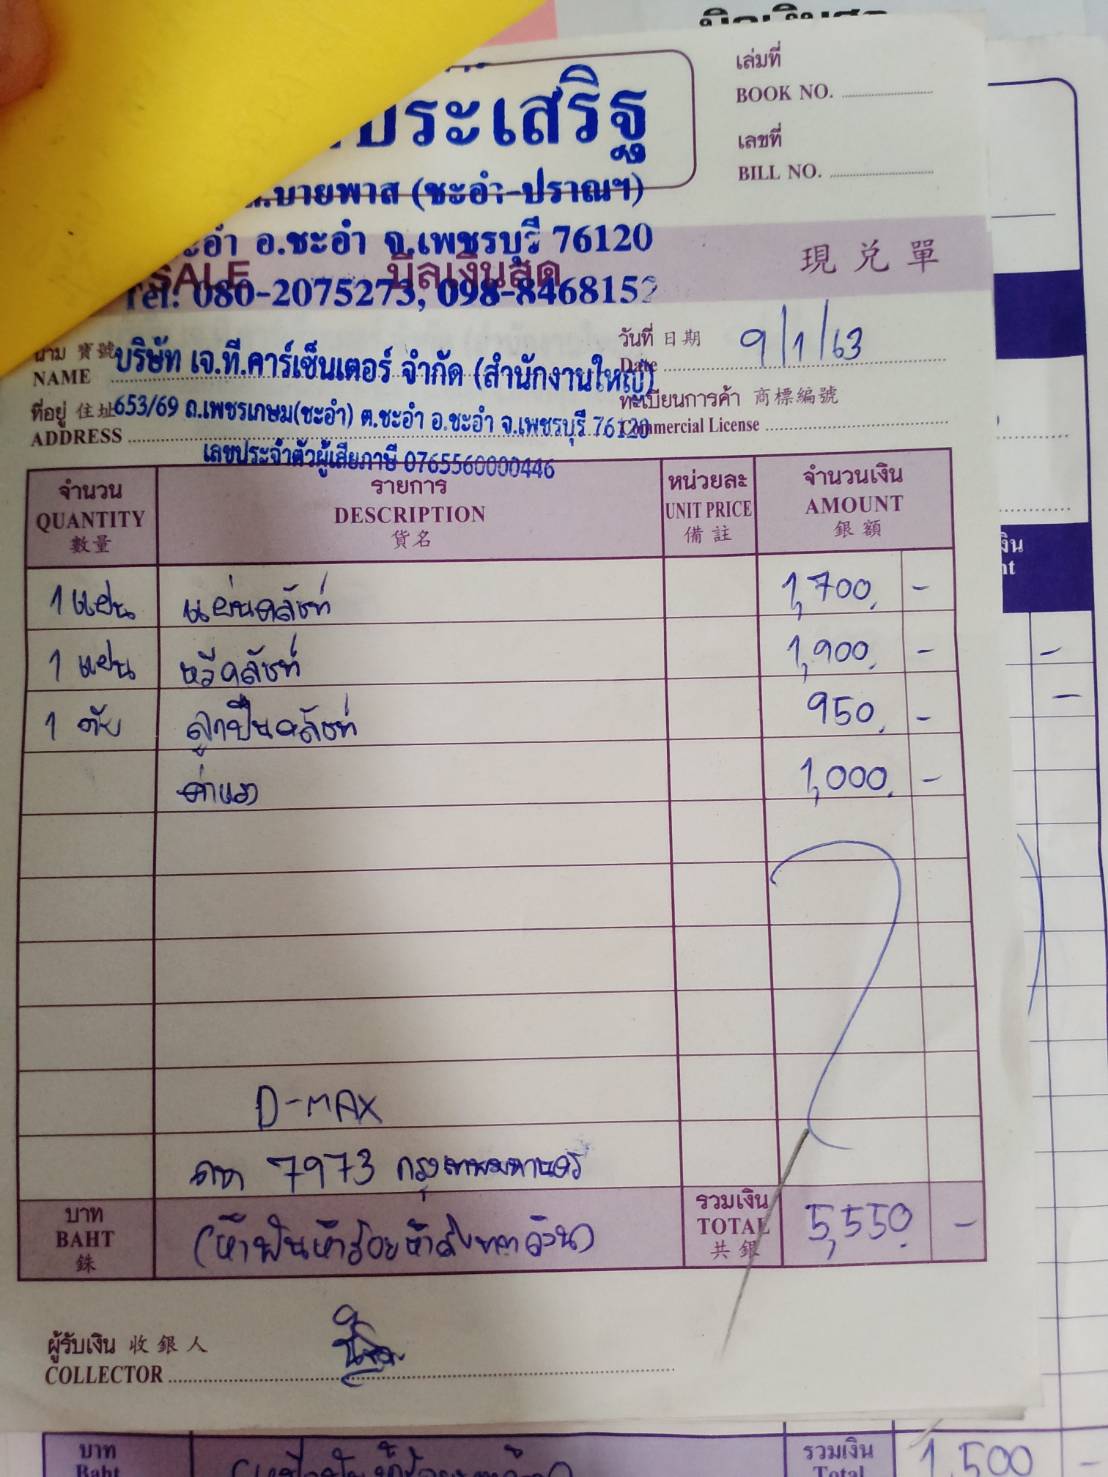 ประเสริฐ
บายพาส (ชะอำ-ปราณฯ)
อ.ชะอำ จ.เพชรบุรี 76120
Tel: 080-2075273, 098-8468152
เล่มที่
BOOK NO.
เลขที่
BILL NO.
SALE บิลเงินสด 現兌單
นาม 寶號 บริษัท เจ.ที.คาร์เซ็นเตอร์ จำกัด (สำนักงานใหญ่)
NAME
วันที่ 日期 9/1/63
Date
ที่อยู่ 住址 653/69 ถ.เพชรเกษม(ชะอำ) ต.ชะอำ อ.ชะอำ จ.เพชรบุรี 76120
ADDRESS
ทะเบียนการค้า 商標編號
Commercial License
เลขประจำตัวผู้เสียภาษี 0765560000446
จำนวน รายการ หน่วยละ จำนวนเงิน
QUANTITY DESCRIPTION UNIT PRICE AMOUNT
數量 貨名 備註 銀額
1 แผ่น แผ่นคลัชท์ 1,700. -
1 แผ่น หวีคลัชท์ 1,900. -
1 ตัว ลูกปืนคลัชท์ 950. -
ค่าแรง 1,000. -
D-MAX
7973 กรุงเทพมหานคร
บาท (ห้าพันห้าร้อยห้าสิบบาทถ้วน) รวมเงิน 5,550. -
BAHT TOTAL
銖 共銀
ผู้รับเงิน 收銀人
COLLECTOR
บาท รวมเงิน 1,500 -
Baht Total